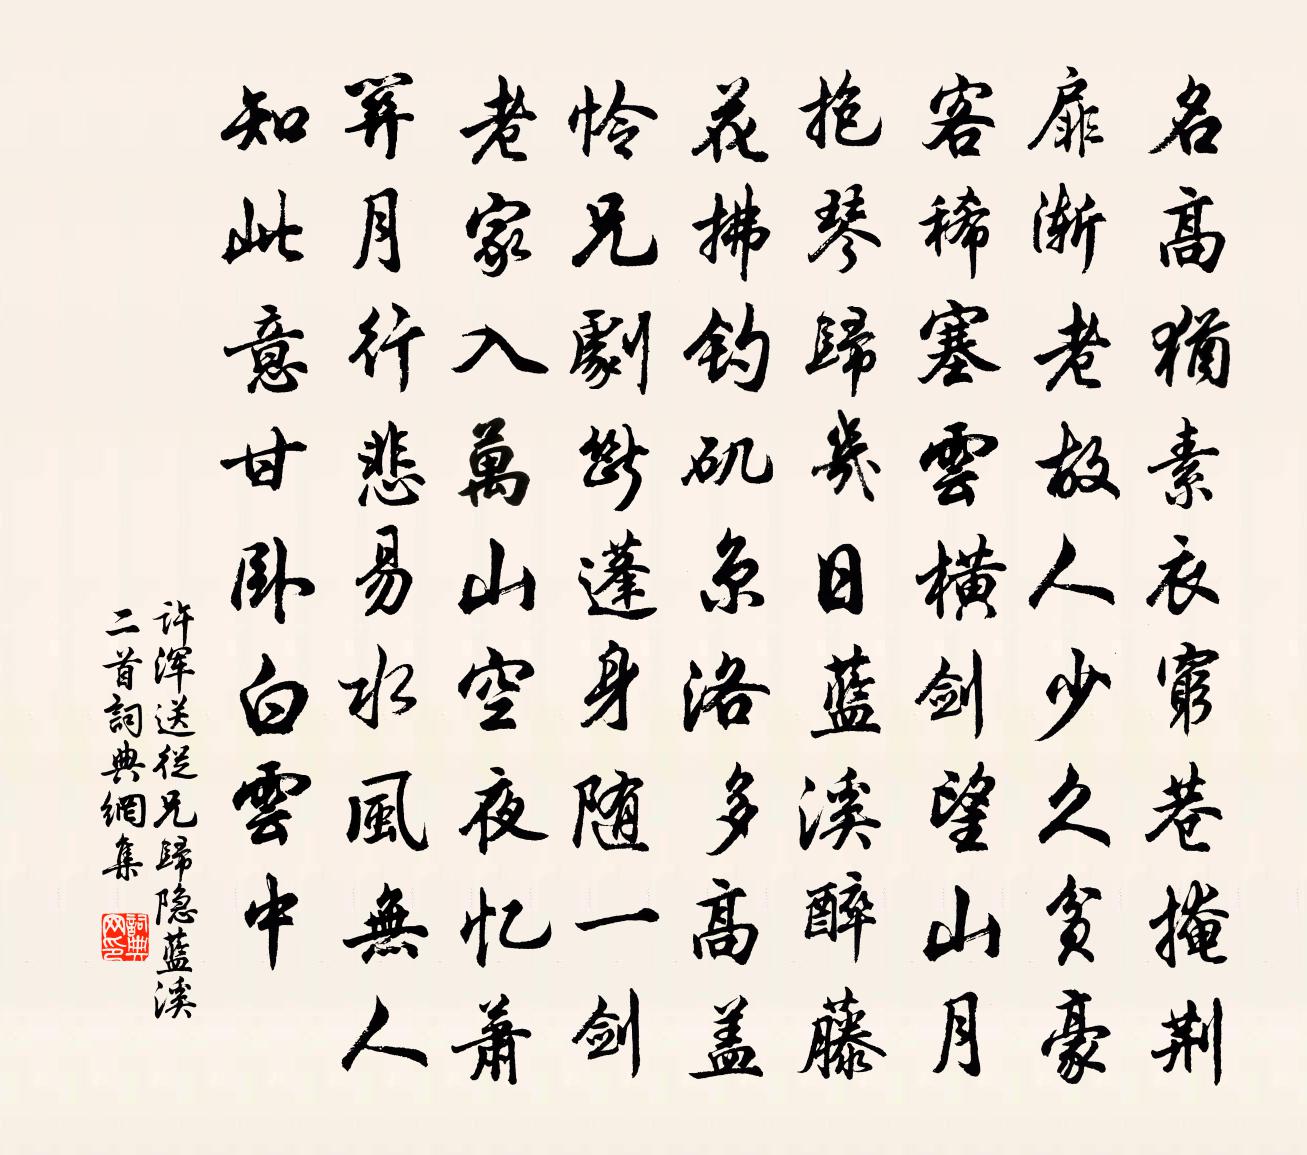 名高猶素衣窮巷掩荆
扉漸老故人少久貧豪
客稀塞雲橫剑望山月
抱琴歸幾日藍溪醉藤
花拂钓矶京洛多高盖
怜兄劇斷蓬身随一剑
老家入萬山空夜忆蕭
關月行悲易水風無人
知此意甘卧白雲中
许浑送從兄歸隐藍溪
二首詞典網集
詞典
网印